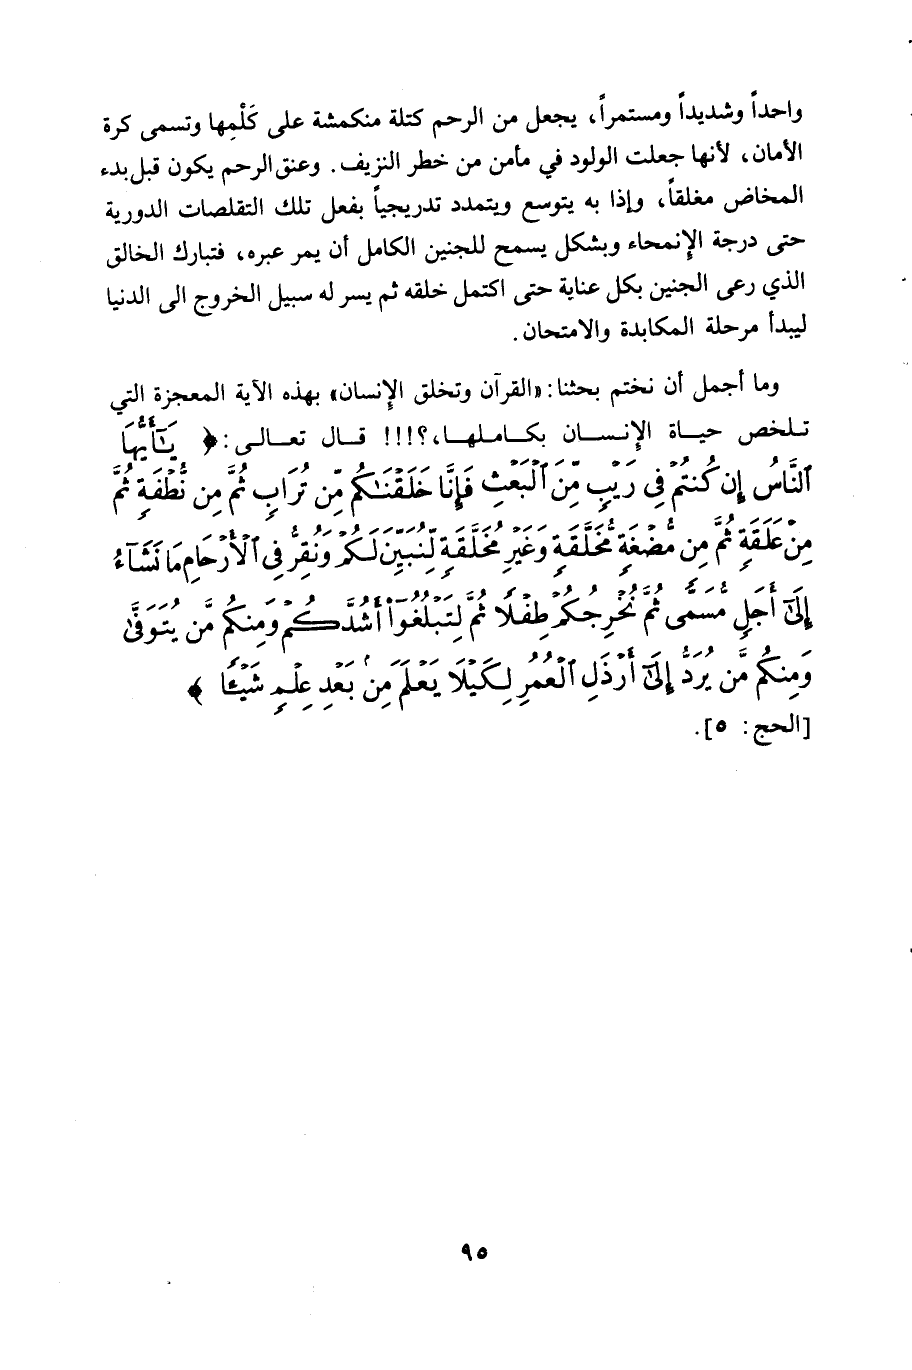 واحداً وشديداً ومستمراً، يجعل من الرحم كتلة منكمشة على كَلْمِها وتسمى كرة
الأمان، لأنها جعلت الولود في مأمن من خطر النزيف. وعنق الرحم يكون قبل بدء
المخاض مغلقاً، وإذا به يتوسع ويتمدد تدريجياً بفعل تلك التقلصات الدورية
حتى درجة الإنمحاء وبشكل يسمح للجنين الكامل أن يمر عبره، فتبارك الخالق
الذي رعى الجنين بكل عناية حتى اكتمل خلقه ثم يسر له سبيل الخروج الى الدنيا
ليبدأ مرحلة المكابدة والامتحان.
وما أجمل أن نختم بحثنا: «القرآن وتخلق الإنسان» بهذه الآية المعجزة التي
تلخص حياة الإنسان بكاملها،؟!!! قال تعالى: ﴿ يَـٰٓأَيُّهَا
ٱلنَّاسُ إِن كُنتُمْ فِى رَيْبٍ مِّنَ ٱلْبَعْثِ فَإِنَّا خَلَقْنَـٰكُم مِّن تُرَابٍ ثُمَّ مِن نُّطْفَةٍ ثُمَّ
مِنْ عَلَقَةٍ ثُمَّ مِن مُّضْغَةٍ مُّخَلَّقَةٍ وَغَيْرِ مُخَلَّقَةٍ لِّنُبَيِّنَ لَكُمْ وَنُقِرُّ فِى ٱلْأَرْحَامِ مَا نَشَآءُ
إِلَىٰٓ أَجَلٍ مُّسَمًّى ثُمَّ نُخْرِجُكُمْ طِفْلًا ثُمَّ لِتَبْلُغُوٓا۟ أَشُدَّكُمْ وَمِنكُم مَّن يُتَوَفَّىٰ
وَمِنكُم مَّن يُرَدُّ إِلَىٰٓ أَرْذَلِ ٱلْعُمُرِ لِكَيْلَا يَعْلَمَ مِنۢ بَعْدِ عِلْمٍ شَيْـًٔا ﴾
[الحج: ٥].
٩٥